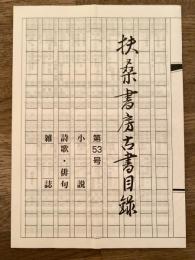 扶桑書房古書目録
第53号
小説
詩歌・俳句
雑誌